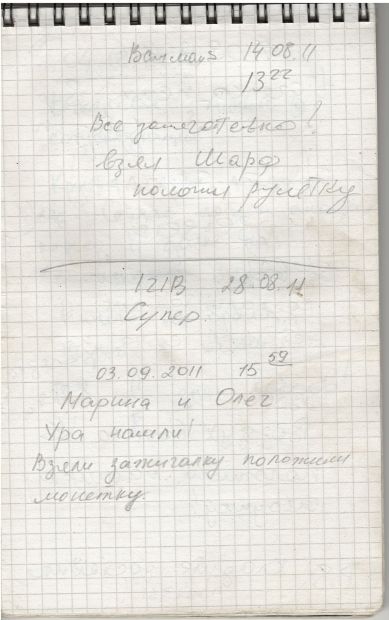 14 08.11
13²²
Все замечательно!
взял Шарф
положил рулетку
121В 28.08.11
Супер.
03.09.2011 15⁵⁹
Марина и Олег
Ура нашли!
Взяли зажигалку положили
монетку.